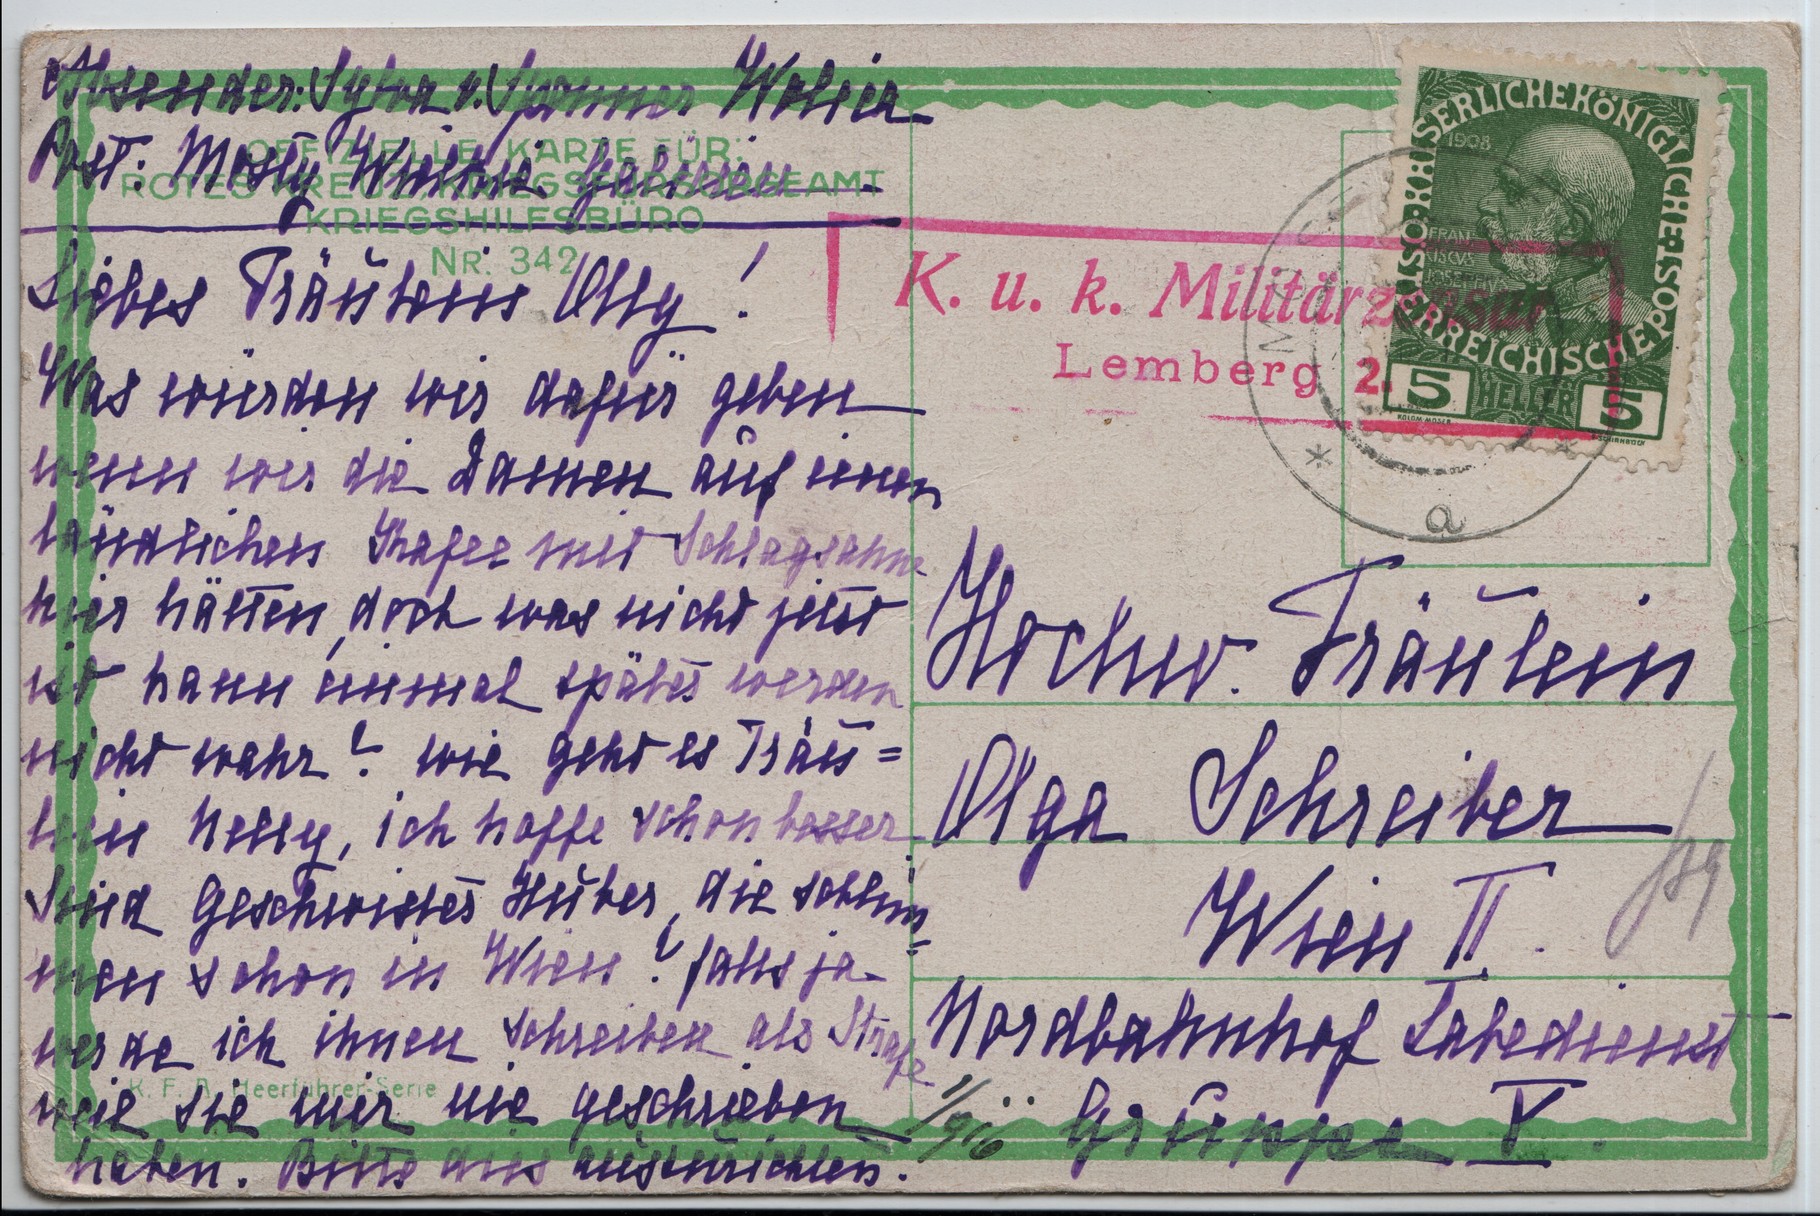 Absender: Sylva v. Spanner Wolica
Post: Mosty Wielkie. Galizien.
OFFIZIELLE KARTE FÜR:
ROTES KREUZ KRIEGSFÜRSORGEAMT
KRIEGSHILFSBÜRO
NR. 342
Liebes Fräulein Olly!
Was würden wir dafür geben
wenn wir die Damen auf einen
ländlichen Kafee mit Schlagsahne
hier hätten, doch was nicht jetzt
ist kann einmal später werden
nicht wahr? wie geht es Fräu=
lein Nelly, ich hoffe schon besser.
Sind Geschwister Huber, die schlim=
men schon in Wien? falls ja
werde ich ihnen schreiben als Strafe
weil sie mir nie geschrieben
haben. Bitte dies auszurichten.
K. F. A. Heerführer-Serie
K. u. k. Militärzensur
Lemberg 2.
KAISERLICHE KÖNIGLICHE
ÖSTERREICHISCHE POST
1908
FRAN
CISCVS
JOSEPHVS
5 HELLER 5
KOLOM. MOSER
F. SCHIRNBÖCK
a
Hochw. Fräulein
Olga Schreiber
Wien II.
Nordbahnhof Labedienst
Gruppe V.